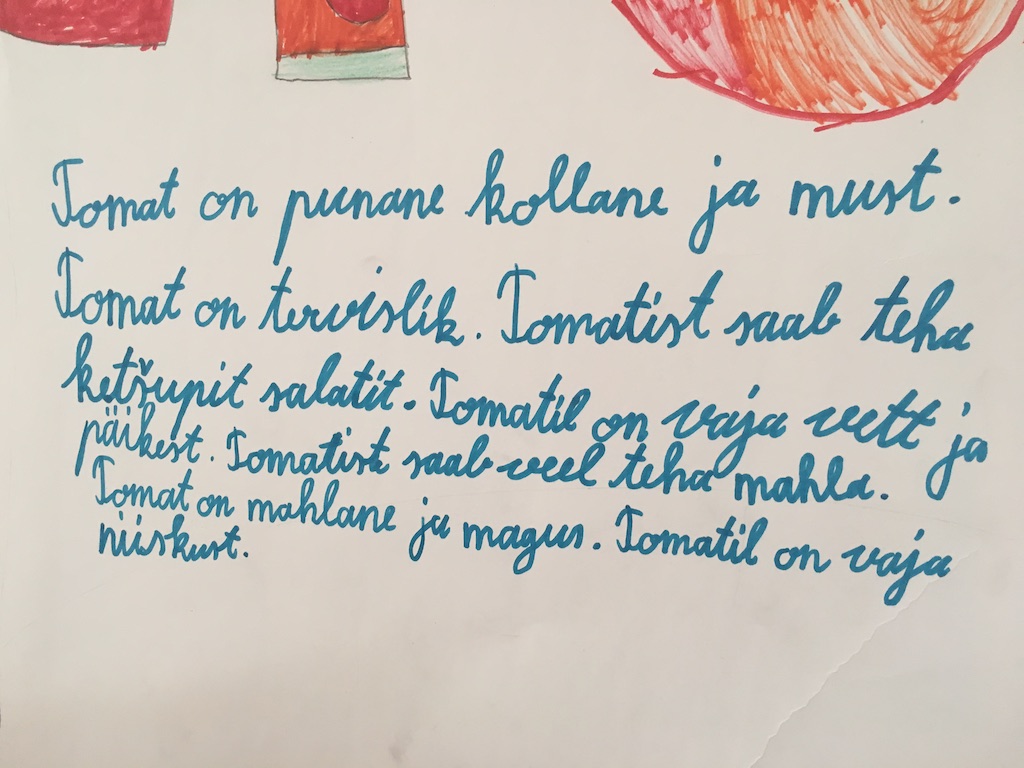 Tomat on punane kollane ja must.
Tomat on tervislik. Tomatist saab teha
ketšupit salatit. Tomatil on vaja vett ja
päikest. Tomatist saab veel teha mahla.
Tomat on mahlane ja magus. Tomatil on vaja
niiskust.